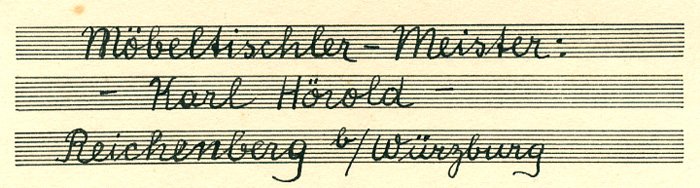 Möbeltischler - Meister:
- Karl Hörold -
Reichenberg b/Würzburg